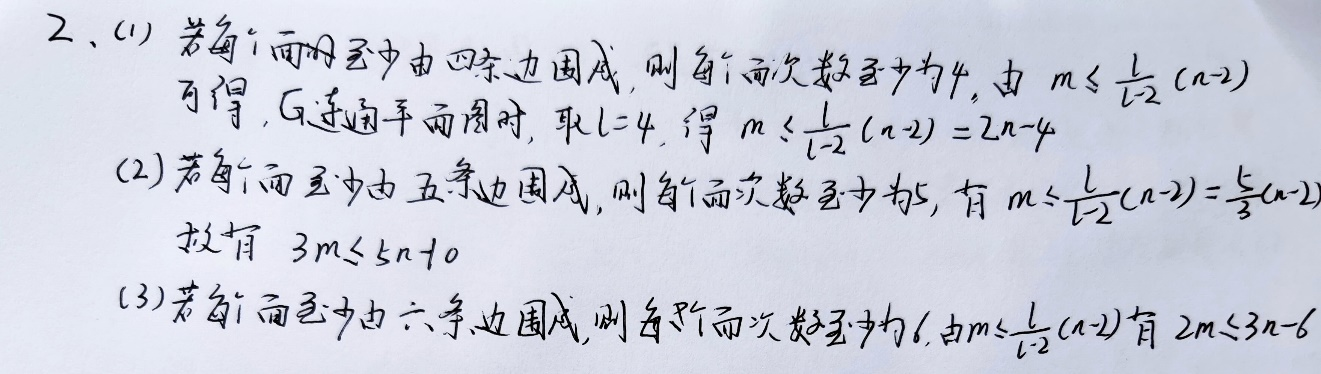 2、(1) 若每个面由至少由四条边围成,则每个面次数至少为4。由 m ≤ \frac{l}{l-2}(n-2)
可得,G连通平面图时,取l=4,得 m ≤ \frac{l}{l-2}(n-2) = 2n-4
(2) 若每个面至少由五条边围成,则每个面次数至少为5,有 m ≤ \frac{l}{l-2}(n-2) = \frac{5}{3}(n-2)
故有 3m ≤ 5n-10
(3) 若每个面至少由六条边围成,则每个面次数至少为6.由 m ≤ \frac{l}{l-2}(n-2) 有 2m ≤ 3n-6